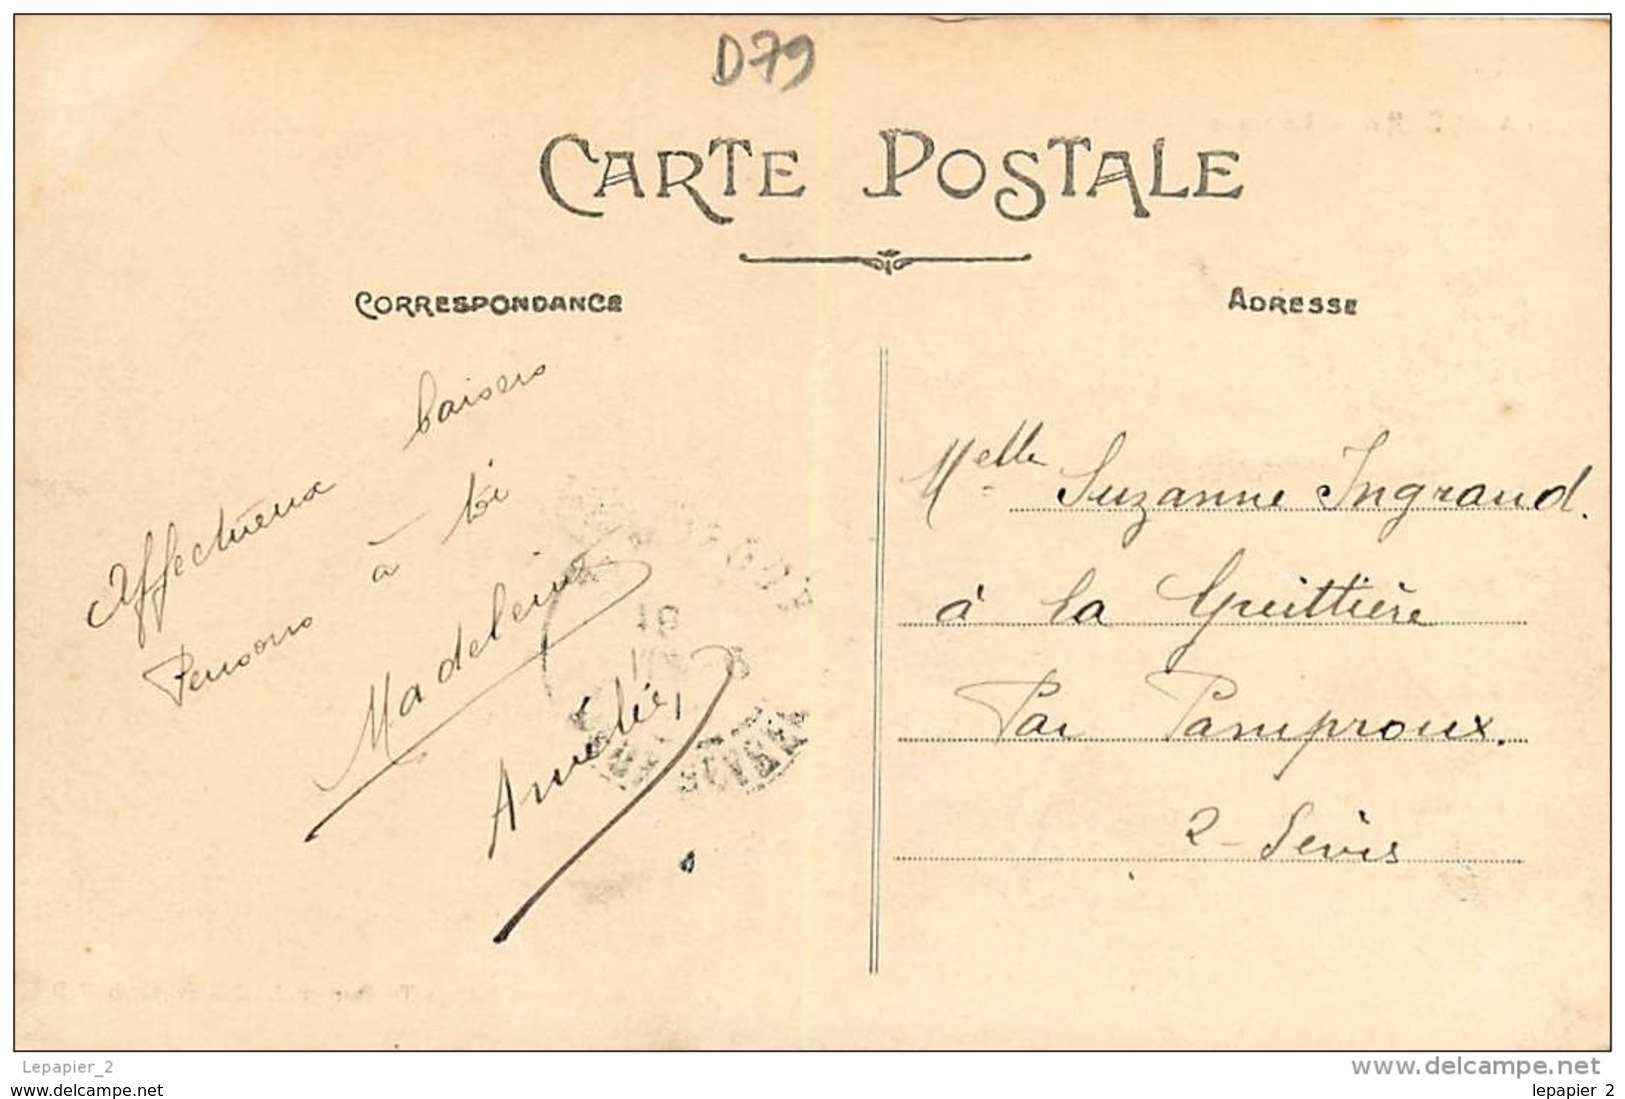 D79
CARTE POSTALE
CORRESPONDANCE
ADRESSE
Affectueux baisers
Pensons à toi
Madeleine
Amélie,
Melle Suzanne Ingrand.
à la Guittière
Par Pamproux.
2-Sèvres
Lepapier_2
www.delcampe.net
www.delcampe.net
lepapier_2